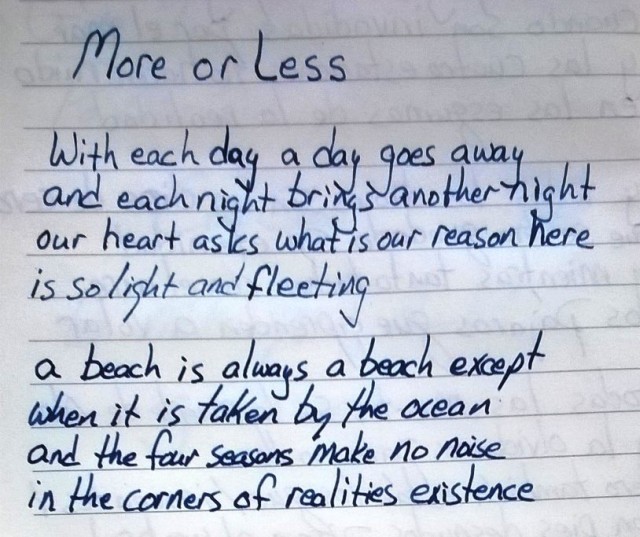 More or Less
With each day a day goes away
and each night brings another night
our heart asks what is our reason here
is so light and fleeting
a beach is always a beach except
when it is taken by the ocean
and the four seasons make no noise
in the corners of realities existence